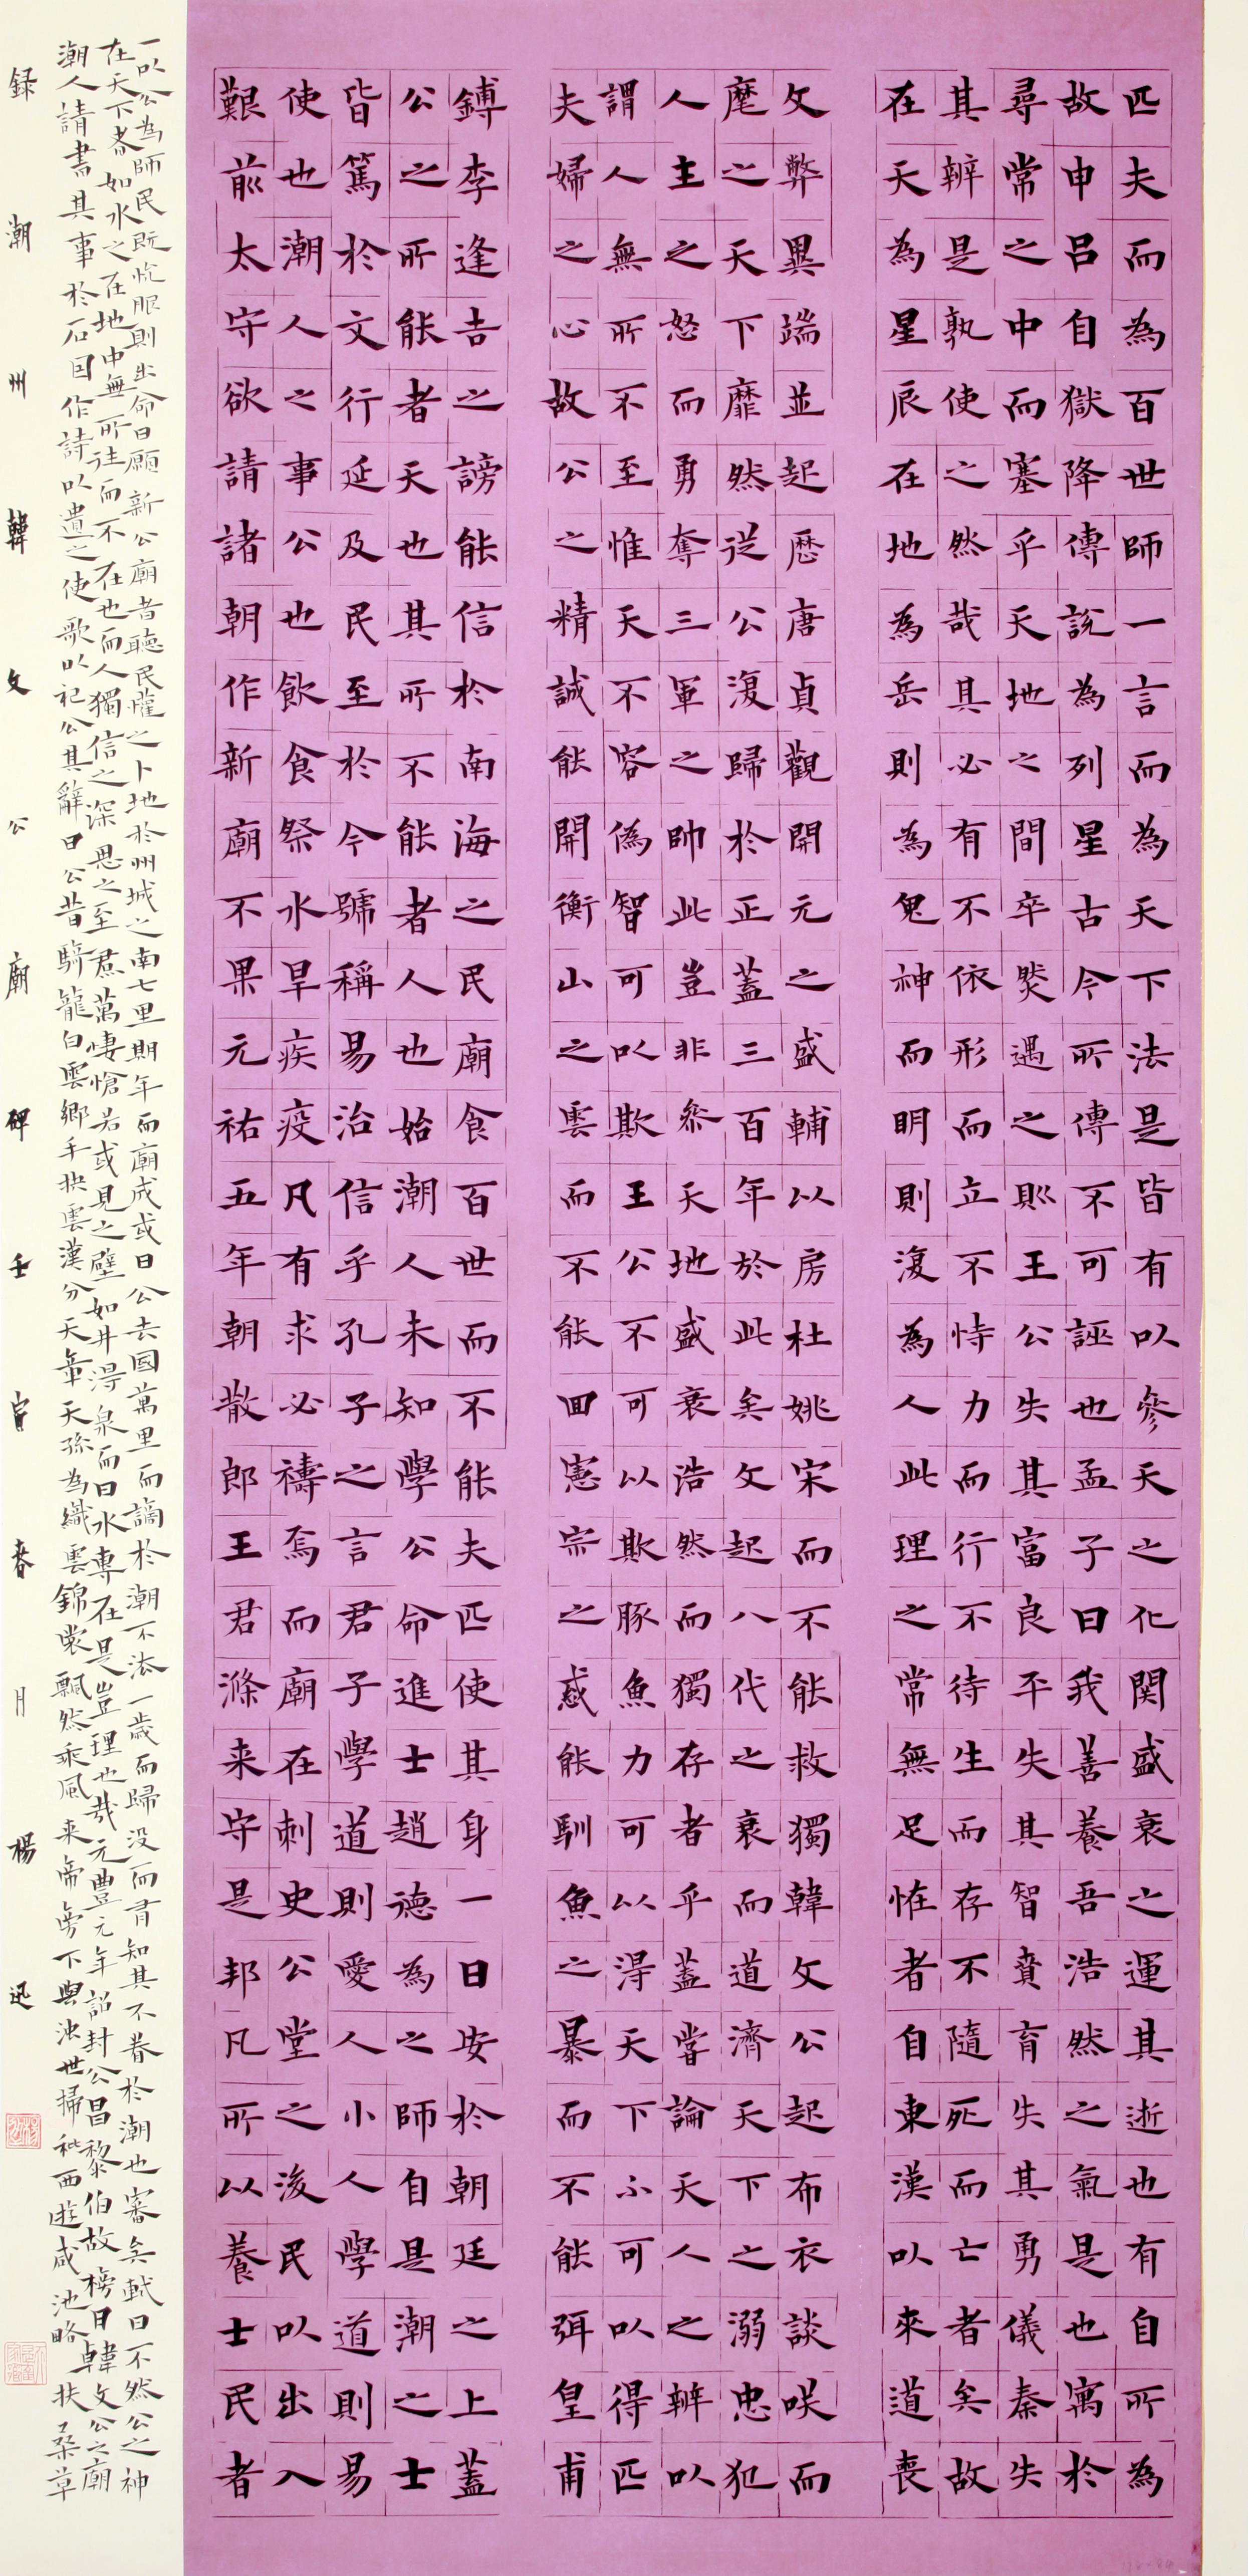 匹夫而為百世師一言而為天下法是皆有以參天之化関盛衰之運其逝也有自所為
故申呂自獄降傅說為列星古今所傳不可誣也孟子曰我善養吾浩然之氣是也寓於
尋常之中而塞乎天地之間卒然遇之則王公失其富良平失其智賁育失其勇儀秦失
其辨是孰使之然哉其必有不依形而立不恃力而行不待生而存不隨死而亡者矣故
在天為星辰在地為岳則為鬼神而明則復為人此理之常無足恠者自東漢以來道喪
文弊異端並起歷唐貞觀開元之盛輔以房杜姚宋而不能救獨韓文公起布衣談咲而
麾之天下靡然從公復歸於正蓋三百年於此矣文起八代之衰而道濟天下之溺忠犯
人主之怒而勇奪三軍之帥此豈非參天地盛衰浩然而獨存者乎蓋嘗論天人之辨以
謂人無所不至惟天不容偽智可以欺王公不可以欺豚魚力可以得天下不可以得匹
夫婦之心故公之精誠能開衡山之雲而不能回憲宗之惑能馴魚之暴而不能弭皇甫
鎛李逢吉之謗能信於南海之民廟食百世而不能夫匹使其身一日安於朝廷之上蓋
公之所能者天也其所不能者人也始潮人未知學公命進士趙德為之師自是潮之士
皆篤於文行延及民至於今號稱易治信乎孔子之言君子學道則愛人小人學道則易
使也潮人之事公也飲食祭水旱疾疫凡有求必禱焉而廟在刺史公堂之後民以出入
艱前太守欲請諸朝作新廟不果元祐五年朝散郎王君滌来守是邦凡所以養士民者
一以公為師民既悅服則出命曰願新公廟者聽民讙之卜地於州城之南七里期年而廟成或曰公去國萬里而謫於潮不能一歲而歸没而有知其不眷於潮也審矣軾曰不然公之神
在天下者如水之在地中無所往而不在也而人獨信之深思之至焄萬悽愴若或見之壁如井得泉而曰水專在是豈理也哉元豐元年詔封公昌黎伯故榜曰韓文公之廟
潮人請書其事於石因作詩以遺之使歌以祀公其辭曰公昔騎龍白雲鄉手抉雲漢分天章天孫為織雲錦裳飄然乘風来帝旁下與濁世掃秕西遊咸池略扶桑草
録潮州韓文公廟碑壬寅春月楊迅